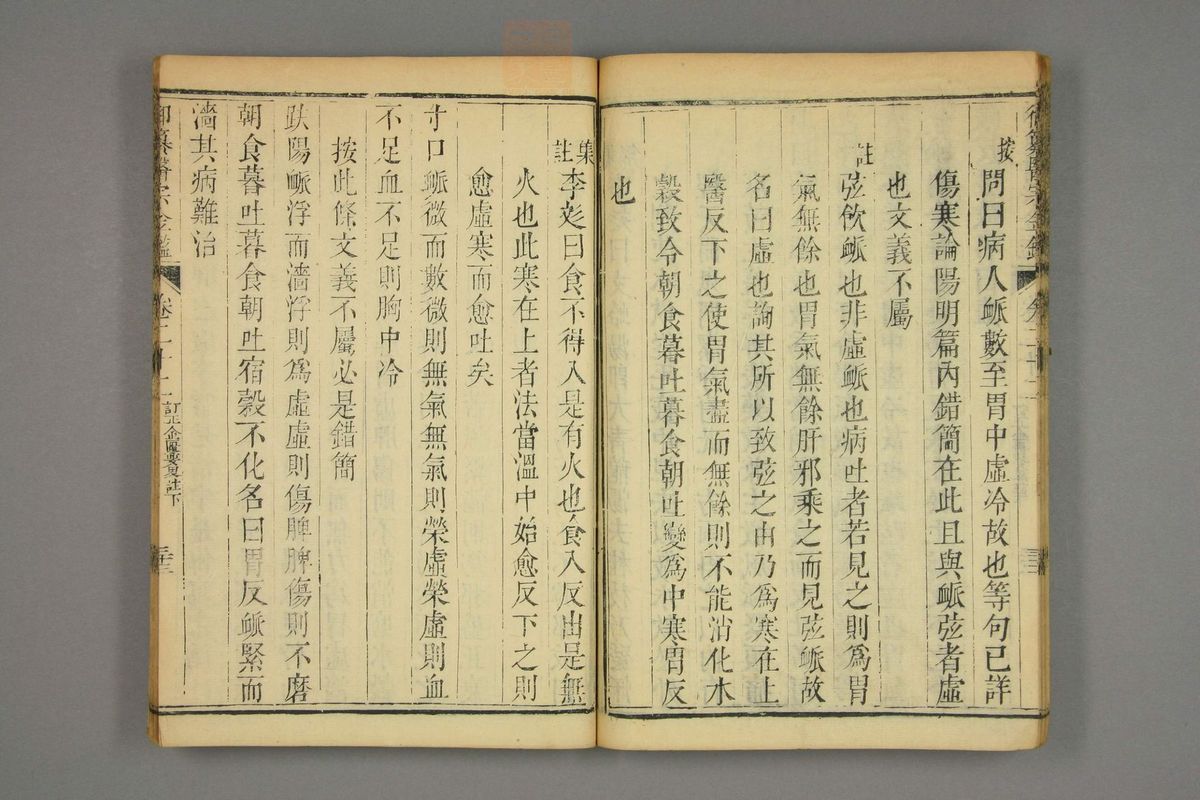 按問曰病人脈數至胃中虛冷故也等句已詳
傷寒論陽明篇內錯簡在此且與脈弦者虛
也文義不屬
註弦飲脈也非虛脈也病吐者若見之則為胃
氣無餘也胃氣無餘肝邪乘之而見弦脈故
名曰虛也詢其所以致弦之由乃為寒在上
醫反下之使胃氣盡而無餘則不能消化水
穀致令朝食暮吐暮食朝吐變為中寒胃反
也
集註李彣曰食不得入是有火也食入反出是無
火也此寒在上者法當溫中始愈反下之則
愈虛寒而愈吐矣
寸口脈微而數微則無氣無氣則榮虛榮虛則血
不足血不足則胸中冷
按此條文義不屬必是錯簡
趺陽脈浮而濇浮則為虛虛則傷脾脾傷則不磨
朝食暮吐暮食朝吐宿穀不化名曰胃反脈緊而
濇其病難治
御纂醫宗金鑑
卷二十二
訂正金匱要畧註下